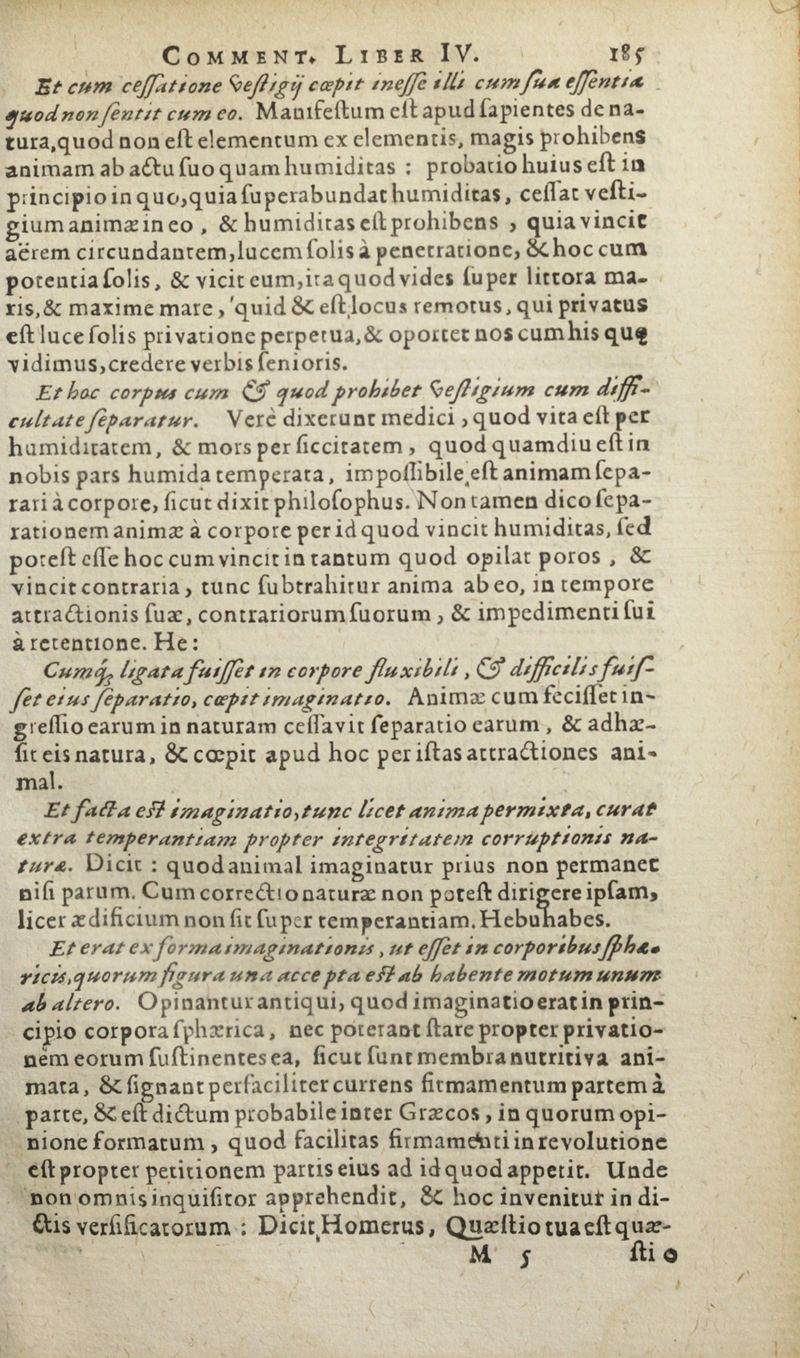 COMMENT. LIBER IV. 185
Et cum ceſſatione veſtigij cœpit ineſſe illi cum ſua eſſentia
quod non ſentit cum eo. Manifeſtum eſt apud ſapientes de na-
tura, quod non eſt elementum ex elementis, magis prohibens
animam ab actu ſuo quam humiditas : probatio huius eſt in
principio in quo, quia ſuperabundat humiditas, ceſſat veſti-
gium animæ in eo , & humiditas eſt prohibens , quia vincit
aërem circundantem, lucem ſolis à penetratione, & hoc cum
potentia ſolis, & vicit eum, ita quod vides ſuper littora ma-
ris, & maxime mare, quid & eſt locus remotus, qui privatus
eſt luce ſolis privatione perpetua, & oportet nos cum his quę
vidimus, credere verbis ſenioris.
Et hoc corpus cum & quod prohibet veſtigium cum diffi-
cultate ſeparatur. Verè dixerunt medici , quod vita eſt per
humiditatem, & mors per ſiccitatem , quod quamdiu eſt in
nobis pars humida temperata, impoſſibile eſt animam ſepa-
rari à corpore, ſicut dixit philoſophus. Non tamen dico ſepa-
rationem animæ à corpore per id quod vincit humiditas, ſed
poteſt eſſe hoc cum vincit in tantum quod opilat poros , &
vincit contraria, tunc ſubtrahitur anima ab eo, in tempore
attractionis ſuæ, contrariorum ſuorum , & impedimenti ſui
à retentione. He :
Cumq; ligata fuiſſet in corpore fluxibili , & difficilis fuiſ-
ſet eius ſeparatio, cœpit imaginatio. Animæ cum feciſſet in-
greſſio earum in naturam ceſſavit ſeparatio earum , & adhæ-
ſit eis natura, & cœpit apud hoc per iſtas attractiones ani-
mal.
Et facta eſt imaginatio, tunc licet anima permixta, curat
extra temperantiam propter integritatem corruptionis na-
turæ. Dicit : quod animal imaginatur prius non permanet
niſi parum. Cum correctio naturæ non poteſt dirigere ipſam,
licet ædificium non ſit ſuper temperantiam. Hebuhabes.
Et erat ex forma imaginationis , ut eſſet in corporibus ſphæ-
ricis, quorum figura una accepta eſt ab habente motum unum
ab altero. Opinantur antiqui, quod imaginatio erat in prin-
cipio corpora ſphærica, nec poterant ſtare propter privatio-
nem eorum ſuſtinentes ea, ſicut ſunt membra nutritiva ani-
mata, & ſignant perfaciliter currens firmamentum partem à
parte, & eſt dictum probabile inter Græcos , in quorum opi-
nione formatum , quod facilitas firmamenti in revolutione
eſt propter petitionem partis eius ad id quod appetit. Unde
non omnis inquiſitor apprehendit, & hoc invenitur in di-
ctis verſificatorum : Dicit Homerus, Quæſtio tua eſt quæ-
M 5 ſtio